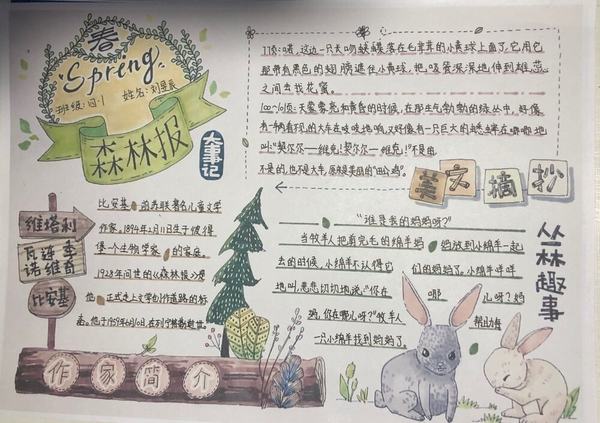 春
Spring
班级:四·1 姓名:刘昱辰
森林报
大事记
77页:喏,这边一只大吻蛱蝶落在毛茸茸的小黄球上面了,它用它
那带有黑色的翅膀遮住小黄球,把吸管深深地伸到雄蕊
之间去找花蜜。
100~101页:天蒙蒙亮和黄昏的时候,在那生气勃勃的绿丛中,好像
有一辆看不见的大车在吱吱地响,又好像有一只巨大的蟋蟀在唧唧地
叫:"契尔尔——维克!契尔尔—维克!"不是车
不是的,也不是大车,原来是美丽的"田公鸡"。
美文摘抄
维塔利
瓦连季
诺维奇
比安基
比安基 前苏联著名儿童文学
作家。1894年2月11日生于彼得
堡一个生物学家 的家庭。
1928年问世的《森林报》是
他 正式走上文学创作道路的标
志。他于1959年6月10日,在列宁格勒逝世。
作家简介
"谁是我的妈妈呀?"
当牧羊人把剪完毛的绵羊妈 妈放到小绵羊一起
去的时候,小绵羊不认得它 们的妈妈了。小绵羊咩咩
地叫,悲悲切切地说:"你在 哪 儿呀?妈
妈,你在哪儿呀?"牧羊人 帮助每
一只小绵羊找到妈妈了。
丛林趣事